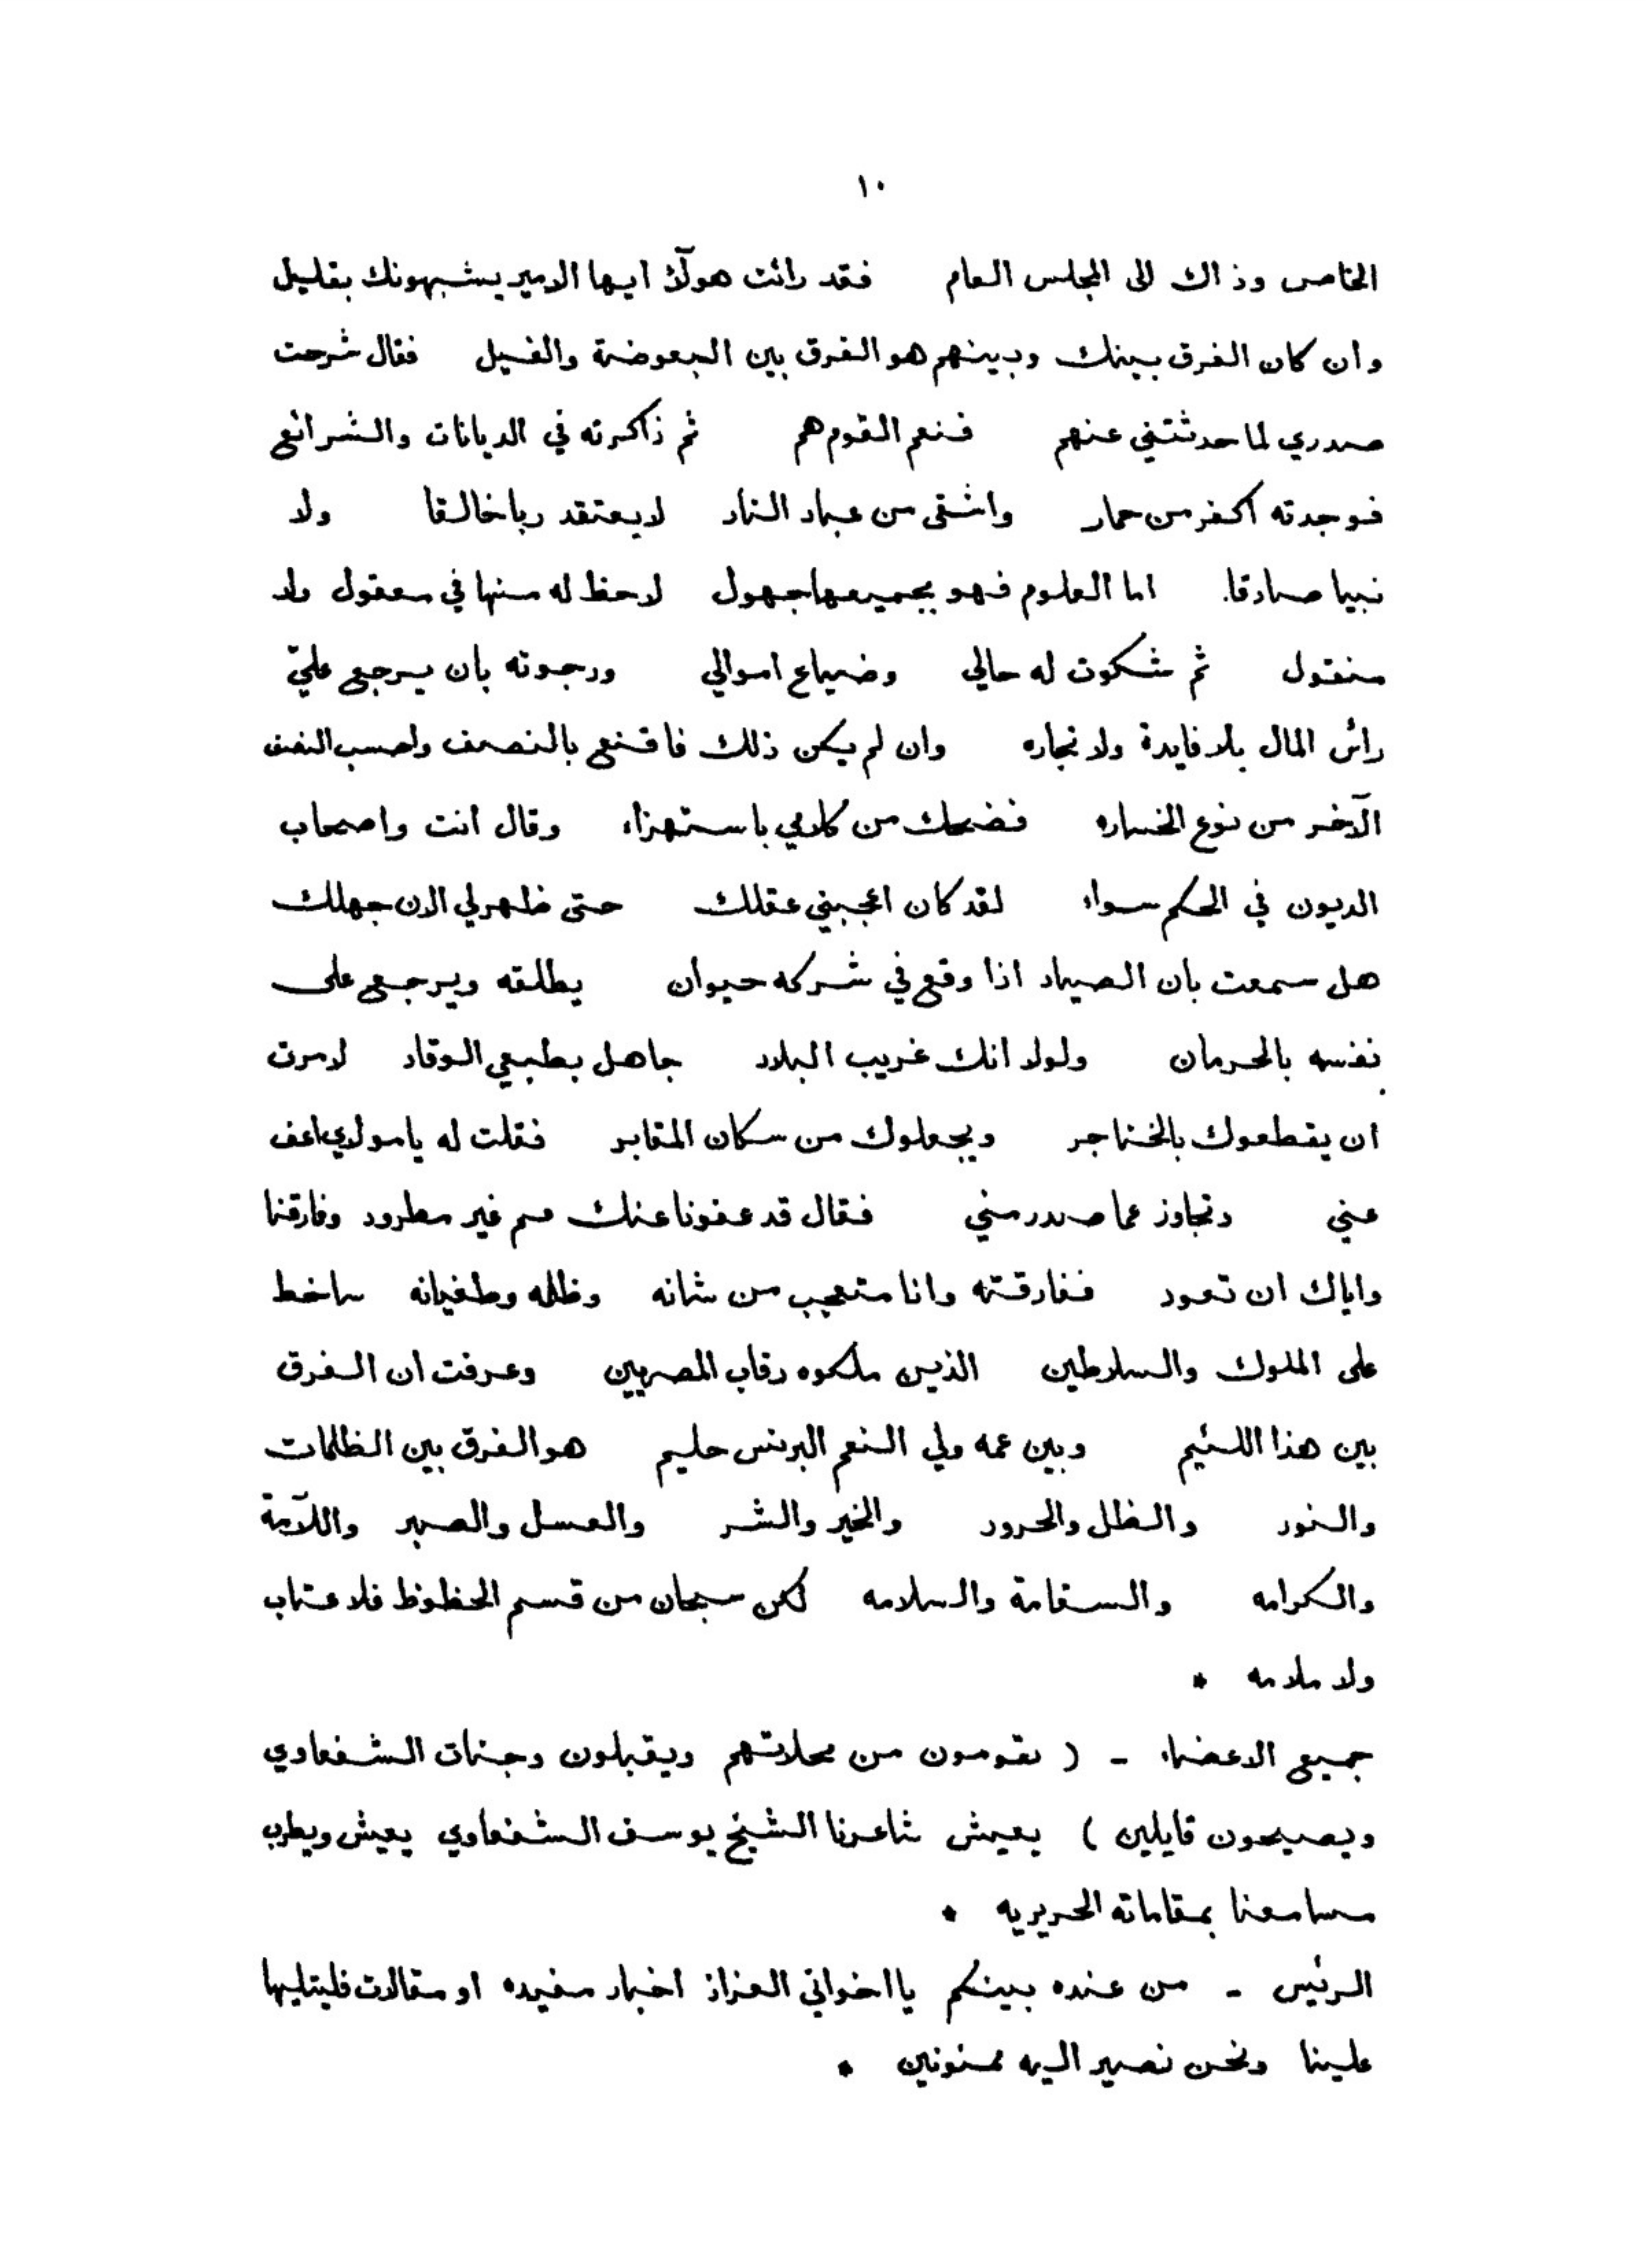 ١٠
الخاص وذاك الى المجلس العام فقد رائت هولآئ ايها الامير يشبهونك بقليل
وان كان الفرق بينك وبينهم هو الفرق بين البعوضة والفيل فقال شرحت
صدري لما حدثتني عنهم فنعم القوم هم ثم ذاكرته في الديانات والشرائع
فوجدته اكفر من حمار واشقى من عباد النار لا يعتقد ربا خالقا ولا
نبيا صادقا. اما العلوم فهو بجميعها جهول لاحظ له منها في معقول ولا
منقول ثم شكوت له حالي وضياع اموالي ورجوته بان يرجع عليّ
رائس المال بلا فايدة ولا تجاره وان لم يكن ذلك فاقنع بالنصف واحسب النصف
الآخر من نوع الخساره فضحك من كلامي باستهزاء وقال انت واصحاب
الديون في الحكم سواء لقد كان اعجبني عقلك حتى ظهر لي الان جهلك
هل سمعت بان الصياد اذا وقع في شركه حيوان يطلقه ويرجع على
نفسه بالحرمان ولولا انك غريب البلاد جاهل بطبعي الوقاد لامرت
ان يقطعوك بالخناجر ويجعلوك من سكان المقابر فقلت له يا مولاي اعف
عني وتجاوز عما صدر مني فقال قد عفونا عنك قم غير مطرود وفارقنا
واياك ان تعود ففارقته وانا متعجب من شانه وظلمه وطغيانه ساخط
على الملوك والسلاطين الذين ملكوه رقاب المصريين وعرفت ان الفرق
بين هذا اللئيم وبين عمه ولي النعم البرنس حليم هو الفرق بين الظلمات
والنور والظل والحرور والخير والشر والعسل والصبر واللآمة
والكرامه والسقامة والسلامه لكن سبحان من قسم الحظوظ فلا عتاب
ولا ملامه *
جميع الاعضاء - ( يقومون من محلاتهم ويقبلون وجنات الشفعاوي
ويصيحون قايلين ) يعيش شاعرنا الشيخ يوسف الشفعاوي يعيش ويطرب
مسامعنا بمقاماته الحريريه *
الرئيس - من عنده بينكم يا اخواني العزاز اخبار مفيده او مقالات فليتليها
علينا ونحن نصير اليه ممنونين *